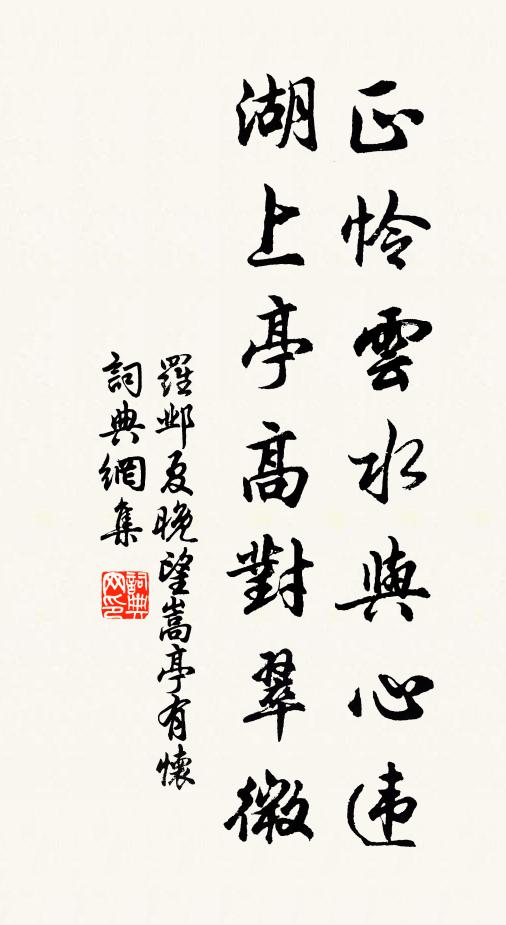 正憐雲水與心違
湖上亭高對翠微
羅邺夏晚望嵩亭有懷
詞典網集
詞典
网印